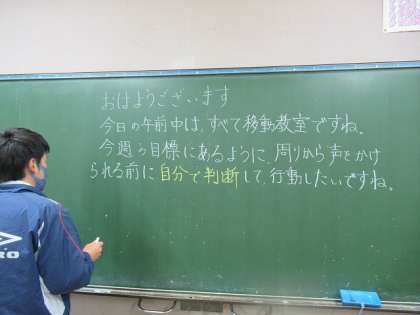 おはようございます
今日の午前中は、すべて移動教室ですね。
今週の目標にあるように、周りから声をかけ
られる前に自分で判断して、行動したいですね。